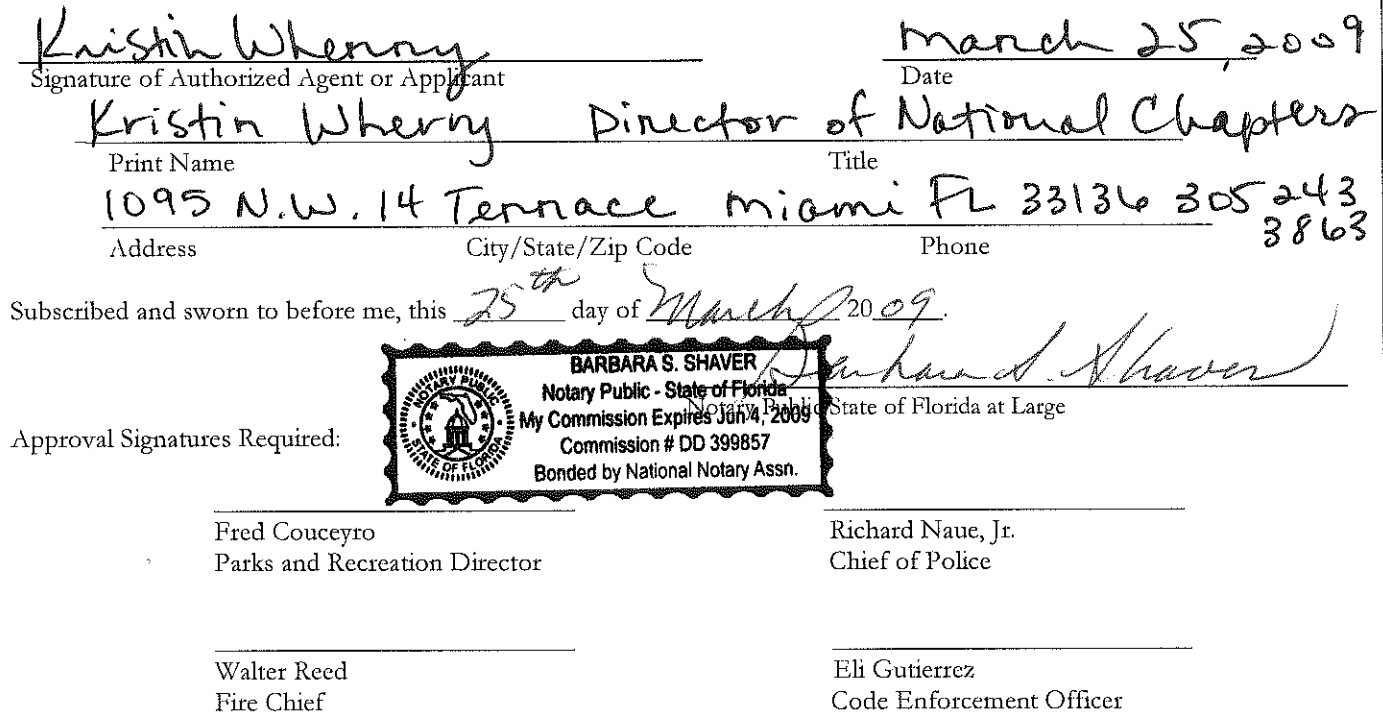 Kristin Wherry March 25, 2009
Signature of Authorized Agent or Applicant Date
Kristin Wherry Director of National Chapters
Print Name Title
1095 N.W. 14 Terrace Miami FL 33136 305 243 3863
Address City/State/Zip Code Phone
Subscribed and sworn to before me, this 25th day of March 2009.
Barbara S. Shaver
Notary Public State of Florida at Large
BARBARA S. SHAVER
Notary Public - State of Florida
My Commission Expires Jun 4, 2009
Commission # DD 399857
Bonded by National Notary Assn.
NOTARY PUBLIC
STATE OF FLORIDA
Approval Signatures Required:
Fred Couceyro Richard Naue, Jr.
Parks and Recreation Director Chief of Police
Walter Reed Eli Gutierrez
Fire Chief Code Enforcement Officer